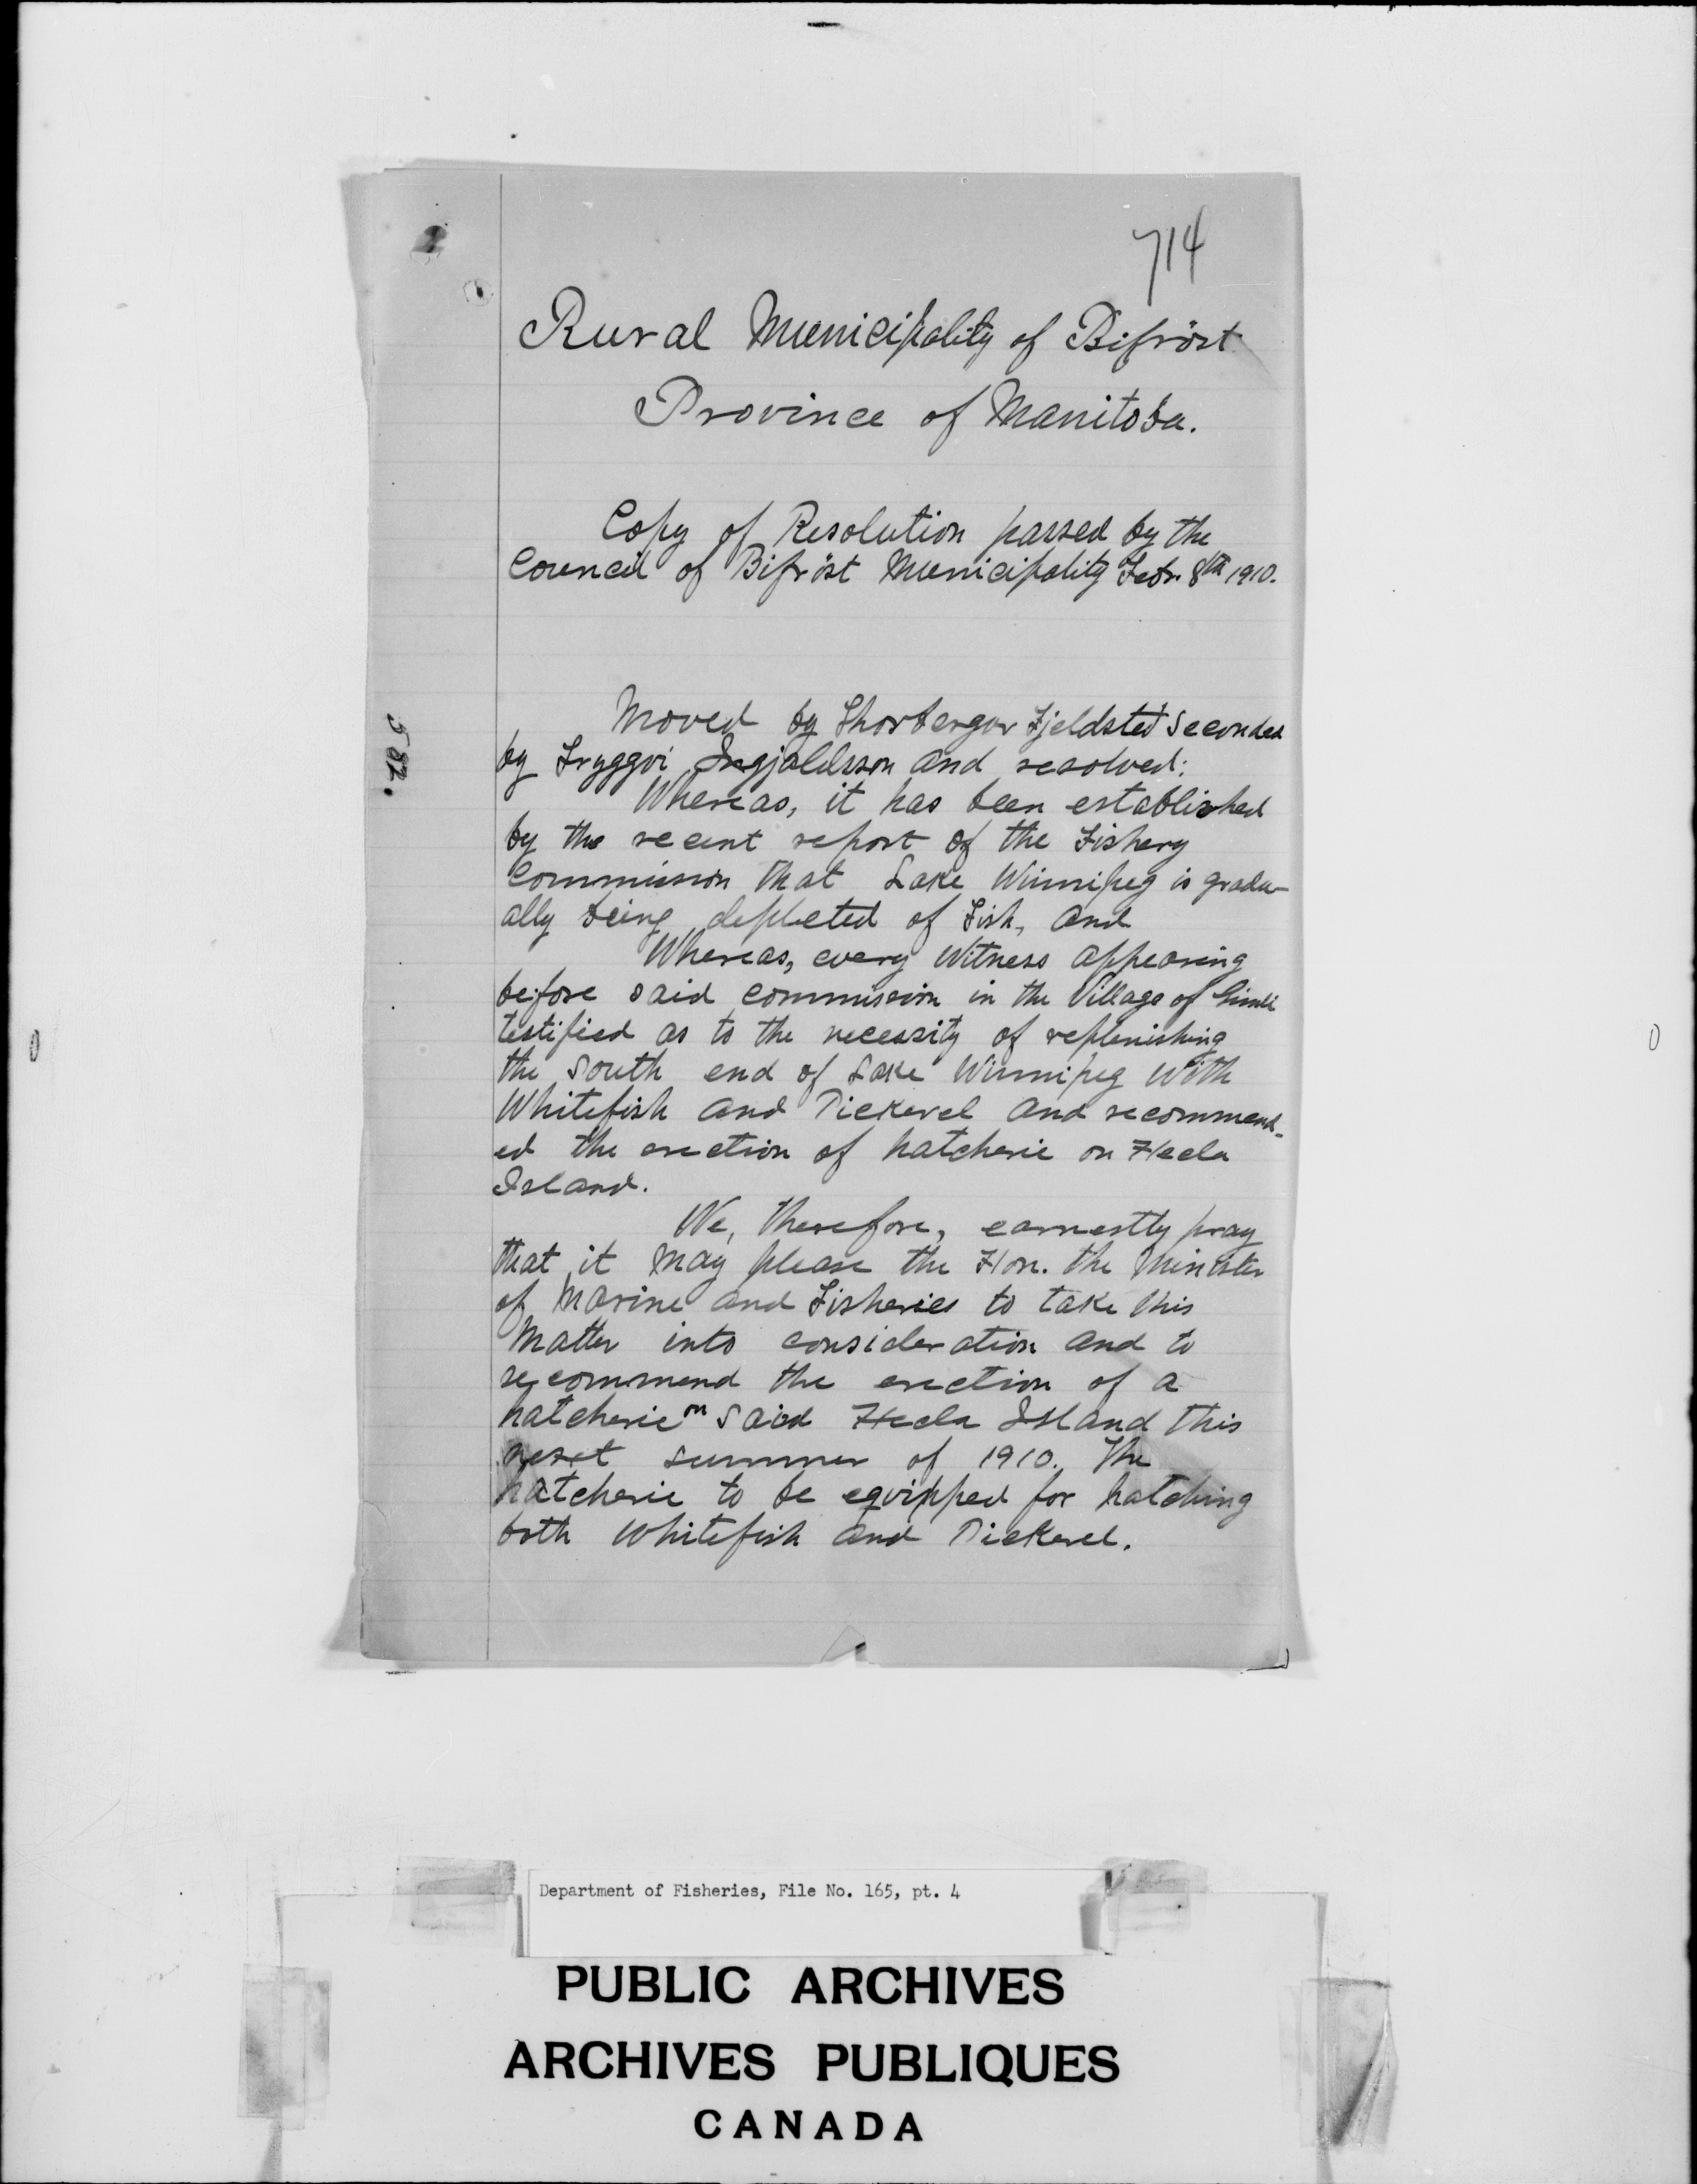 714
Rural Municipality of Bifröst
Province of Manitoba.
Copy of Resolution passed by the
Council of Bifröst Municipality Febr. 8th 1910.
582.
Moved by Thorbergur Fjeldsted Seconded
by Tryggvi Ingjaldsson and resolved:
Whereas, it has been established
by the recent report of the Fishery
Commission that Lake Winnipeg is gradu-
ally being depleted of Fish, and
Whereas, every Witness appearing
before said commission in the Village of Gimli
testified as to the necessity of replenishing
the South end of Lake Winnipeg with
Whitefish and Pickerel and recommend-
ed the erection of hatcherie on Hecla
Island.
We, therefore, earnestly pray
that it may please the Hon. the Minister
of Marine and Fisheries to take this
Matter into consideration and to
recommend the erection of a
hatcherie on said Hecla Island this
next summer of 1910. The
hatcherie to be equipped for hatching
both Whitefish and Pickerel.
Department of Fisheries, File No. 165, pt. 4
PUBLIC ARCHIVES
ARCHIVES PUBLIQUES
CANADA